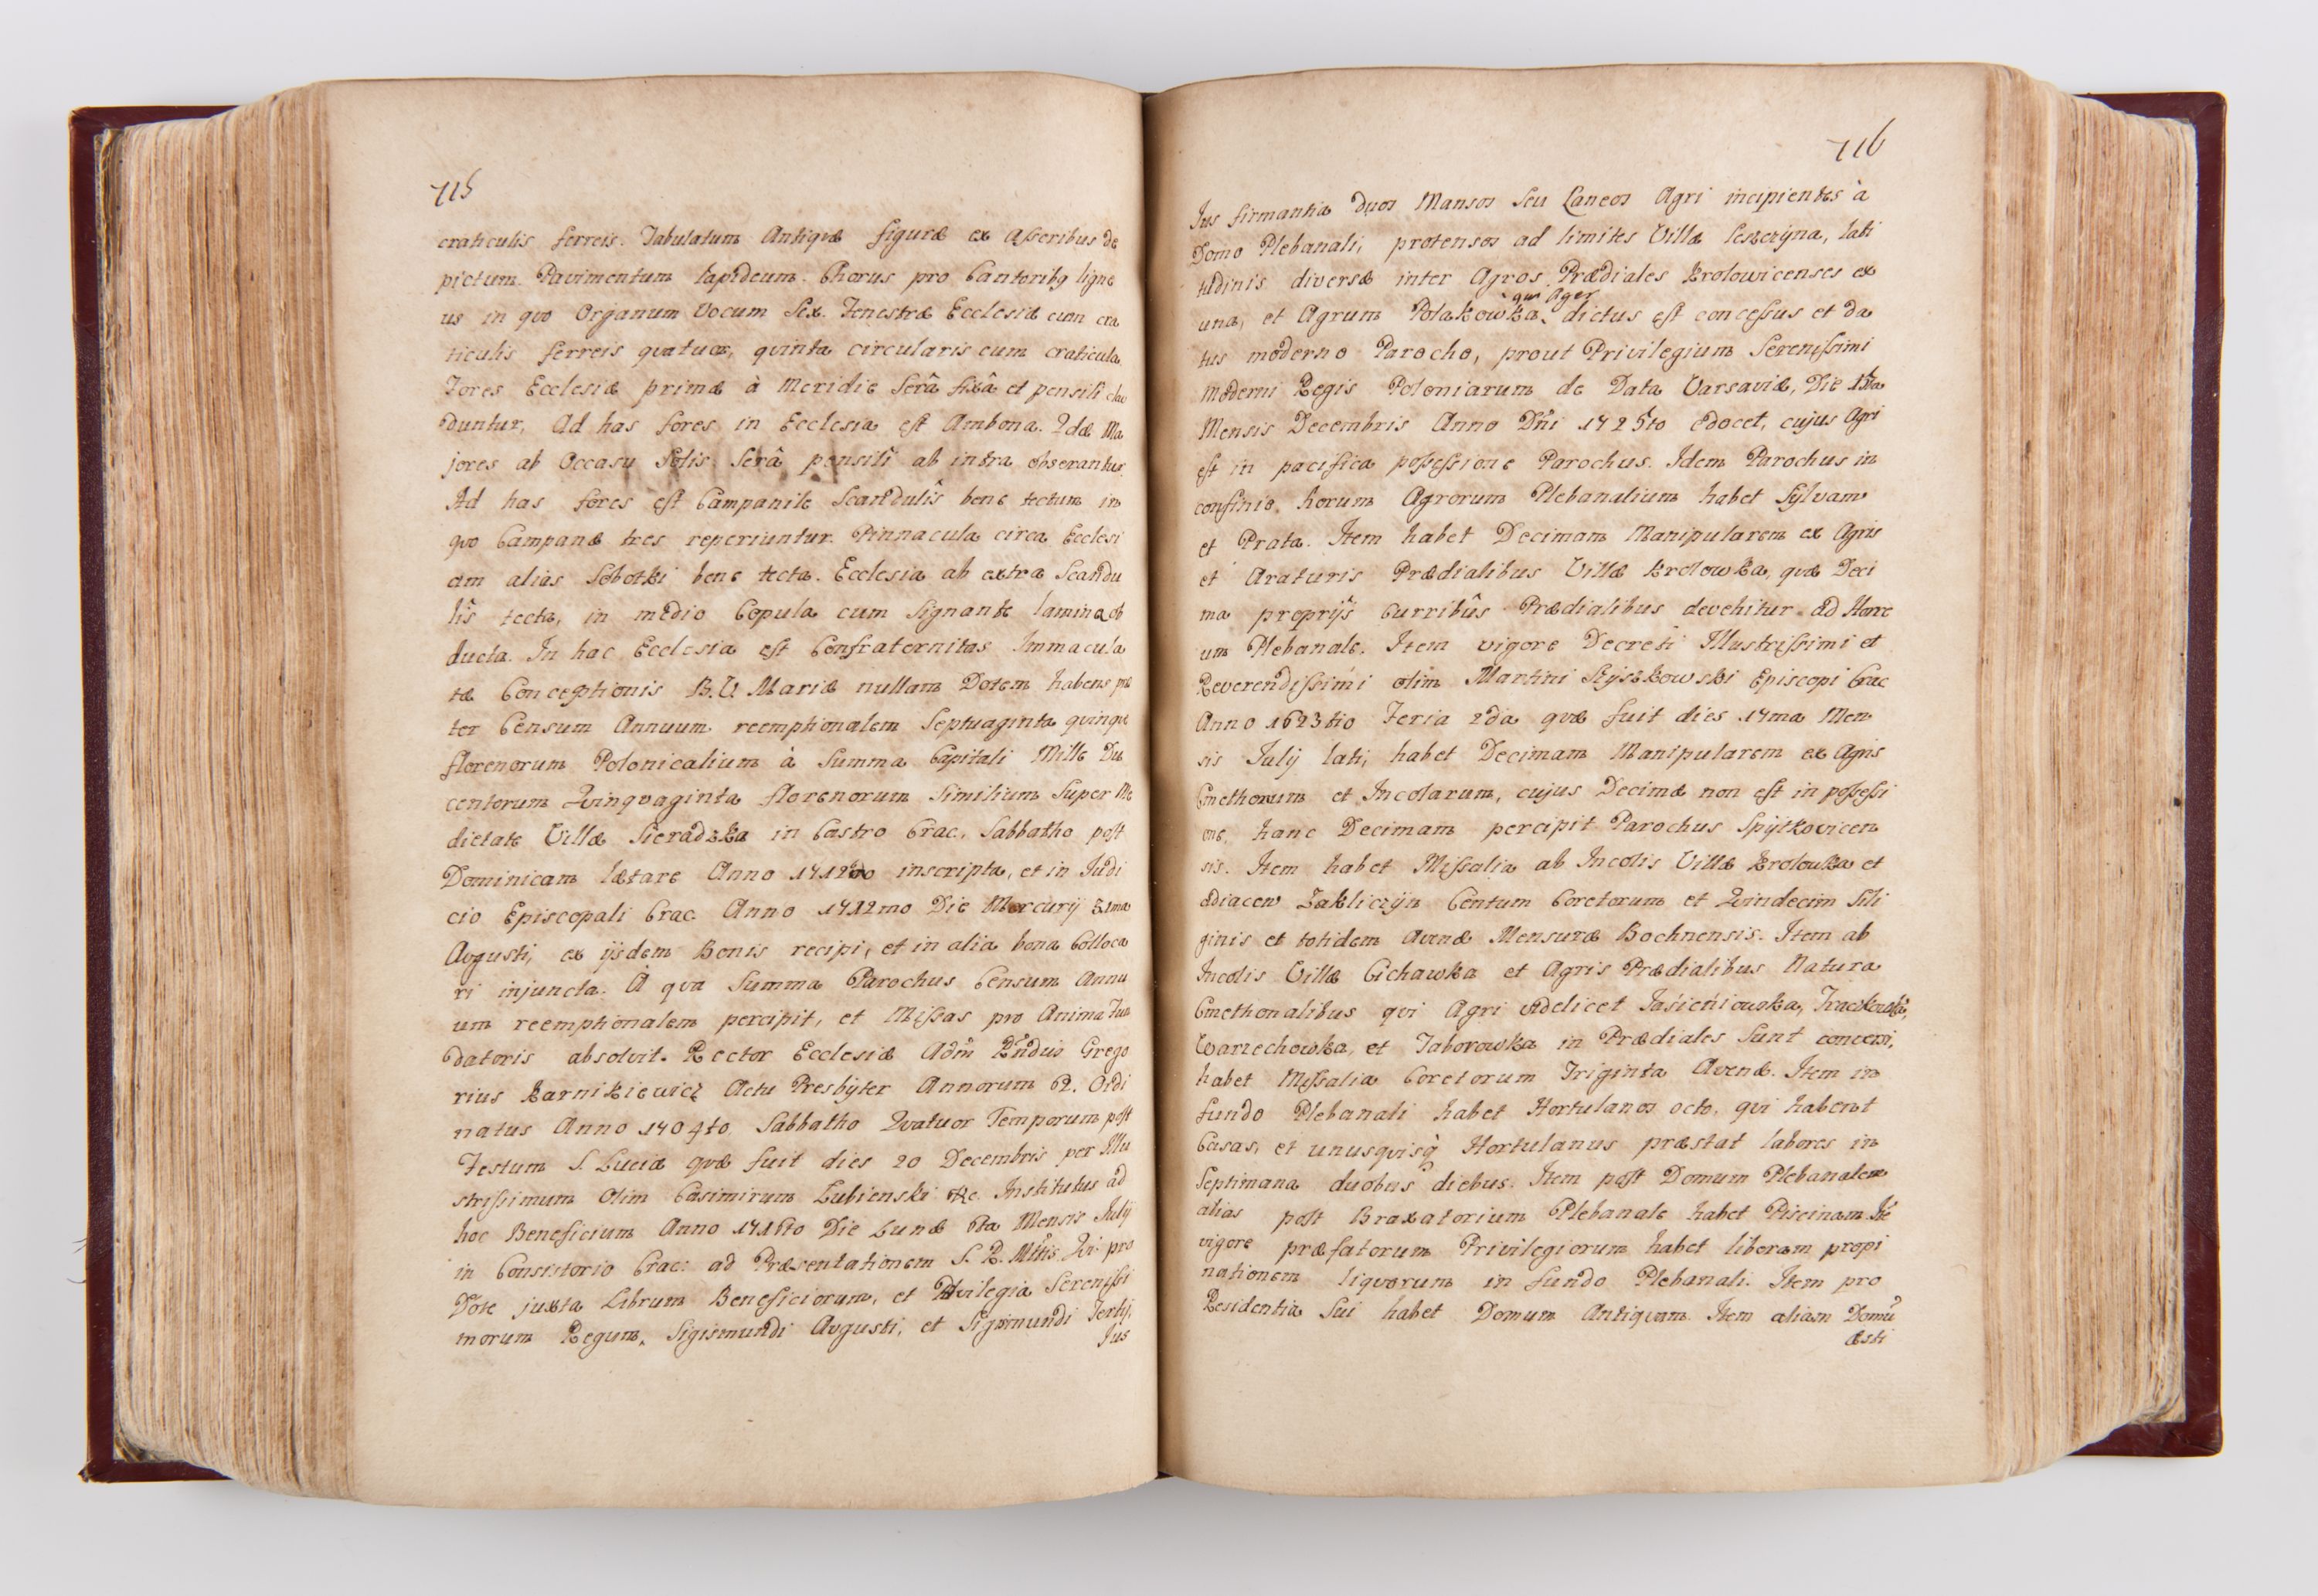 715
craticulis ferreis. Tabulatum Antiquæ figuræ ex Asseribus de
pictum. Pavimentum lapideum. Chorus pro Cantoribq ligne
us in quo Organum Vocum Sex. Fenestræ Ecclesiæ cum cra
ticulis ferreis quatuor, quinta circularis cum craticula.
Fores Ecclesiæ primæ à Meridie Serâ fixâ et pensili clau
duntur, Ad has fores in Ecclesia est Ambona. 2dæ Ma
jores ab Occasu Solis Serâ pensili ab intra obserantur.
Ad has fores est Campanile Scandulis bene tectum in
quo Campanæ tres reperiuntur. Pinnacula circa Ecclesi
am alias Sobotki bene tecta. Ecclesia ab extra Scandu
lis tecta, in medio Copula cum Signante lamina ob
ducta. In hac Ecclesia est Confraternitas Immacula
tæ Conceptionis B.V. Mariæ nullam Dotem habens præ
ter Censum Annuum reemptionalem Septuaginta quinque
florenorum Polonicalium à Summa Capitali Mille Du
centorum Quinquaginta florenorum Similium Super Me
dietate Villæ Sieradzka in Castro Crac. Sabbatho post
Dominicam lætare Anno inscripta, et in Judi
cio Episcopali Crac. Anno 1712mo Die Mercurij 31ma
Augusti, ex ijsdem Bonis recipi, et in alia bona Colloca
ri injuncta. A qua Summa Parochus Censum Annu
um reemptionalem percipit, et Missas pro Anima Fun
datoris absolvit. Rector Ecclesiæ Adm Rndus Grego
rius Karnikiewicz Actu Presbyter Annorum 62. Ordi
natus Anno 1704to Sabbatho Quatuor Temporum post
Festum S. Luciæ quæ fuit dies 20 Decembris per Illu
strissimum Olim Casimirum Lubienski &c. Institutus ad
hoc Beneficium Anno 1716to Die Lunæ 6ta Mensis Julij
in Consistorio Crac: ad Præsentationem S. R. Mttis. Qui pro
Dote juxta Librum Beneficiorum, et Privilegia Serenissi
morum Regum, Sigismundi Augusti, et Sigismundi Tertij,
Jus
716
Jus firmantia duos Mansos Seu Laneos Agri incipientes à
Domo Plebanali, protensos ad limites Villæ Leszczyna, lati
tudinis diversæ inter Agros Prædiales Krolowicenses ex
qui Ager
una, et Agrum Polakowka dictus est concessus et da
tus moderno Parocho, prout Privilegium Serenissimi
Moderni Regis Poloniarum de Data Varsaviæ, Die
Mensis Decembris Anno Dni 1725to edocet, cujus Agri
est in pacifica possessione Parochus. Idem Parochus in
confinio horum Agrorum Plebanalium habet Sylvam
et Prata. Item habet Decimam Manipularem ex Agris
et Araturis Prædialibus Villæ Krolowka, quæ Deci
ma proprijs Curribus Prædialibus devehitur ad Horre
um Plebanale. Item vigore Decreti Illustrissimi et
Reverendissimi olim Martini Szyszkowski Episcopi Crac
Anno 1623tio Feria 2da quæ fuit dies 17ma Men
sis Julij lati, habet Decimam Manipularem ex Agris
Cmethonum et Incolarum, cujus Decimæ non est in possessi
one, hanc Decimam percipit Parochus Spytkovicen
sis. Item habet Missalia ab Incolis Villæ Krolowka et
adiacen Zakliczyn Centum Coretorum et Quindecim Sili
ginis et totidem Avenæ Mensuræ Bochnensis. Item ab
Incolis Villæ Cichawka et Agris Prædialibus Natura
Cmethonalibus qui Agri videlicet Jasieniowska,
Warzechowka, et Taborowka in Prædiales Sunt conversi,
habet Missalia Coretorum Triginta Avenæ. Item in
fundo Plebanali habet Hortulanos octo, qui habent
Casas, et unusquisq Hortulanus præstat labores in
Septimana duobus diebus. Item post Domum Plebanalem
alias post Braxatorium Plebanale habet Piscinam. Ite
vigore præfatorum Privilegiorum habet liberam propi
nationem liquorum in fundo Plebanali. Item pro
Residentia Sui habet Domum Antiquam. Item aliam Domu
æsti